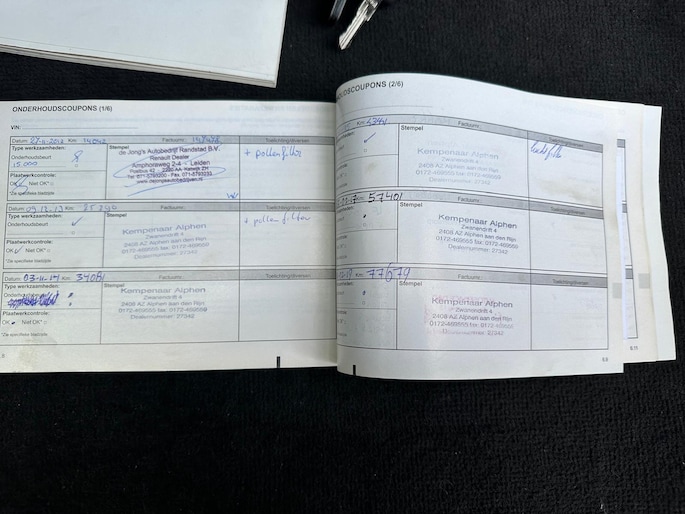 ONDERHOUDSCOUPONS (1/6)
VIN:
Datum: 27-11-2012 Km: 14042 Factuurnr.:
Type werkzaamheden: Stempel Toelichting/diversen
Onderhoudsbeurt 8
15.000
de Jong's Autobedrijf Randstad B.V.
Renault Dealer
Amphoraweg 2-4 - Leiden
Postbus 42 - 2220 AA Katwijk ZH
www.dejongsautobedrijven.nl
+ pollenfilter
Plaatwerkcontrole:
OK Niet OK*
*Zie specifieke bladzijde.
Datum: 09-12-13 Km: 25240 Factuurnr.: Toelichting/diversen
Type werkzaamheden: Stempel
Onderhoudsbeurt
+ pollenfilter
Kempenaar Alphen
Zwanendrift 4
2408 AZ Alphen aan den Rijn
0172-469555 fax: 0172-469559
Dealernummer: 27342
Plaatwerkcontrole:
OK Niet OK*
*Zie specifieke bladzijde.
Datum: 03-11-14 Km: Factuurnr.: Toelichting/diversen
Type werkzaamheden: Stempel
Onderhoudsbeurt
Kempenaar Alphen
Zwanendrift 4
2408 AZ Alphen aan den Rijn
0172-469555 fax: 0172-469559
Dealernummer: 27342
Plaatwerkcontrole:
OK Niet OK*
*Zie specifieke bladzijde.
8
(2/6)
Km: Factuurnr.: Toelichting/diversen
Stempel
Kempenaar Alphen
Zwanendrift 4
2408 AZ Alphen aan den Rijn
0172-469555 fax: 0172-469559
Dealernummer: 27342
Km: 57401 Factuurnr.: Toelichting/diversen
Stempel
Kempenaar Alphen
Zwanendrift 4
2408 AZ Alphen aan den Rijn
0172-469555 fax: 0172-469559
Dealernummer: 27342
Km: 77679 Factuurnr.: Toelichting/diversen
Stempel
Kempenaar Alphen
Zwanendrift 4
2408 AZ Alphen aan den Rijn
0172-469555 fax: 0172-469559
Dealernummer: 27342
6.9
6.11